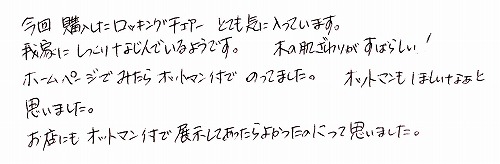 今回 購入したロッキングチェアー とても気に入っています。
我家に しっくりなじんでいるようです。 木の肌ざわりがすばらしい!
ホームページでみたら オットマン付で のってました。 オットマンも ほしいなぁと
思いました。
お店にも オットマン付で展示してあったらよかったのにって思いました。